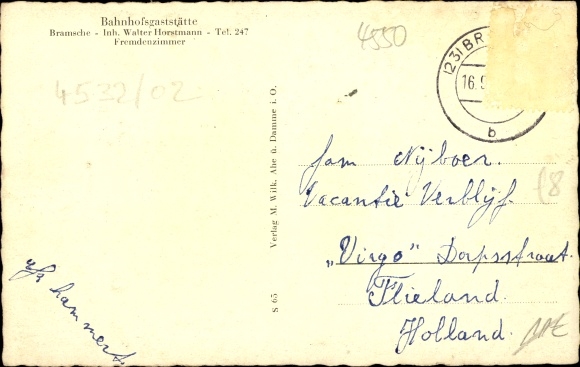 Bahnhofsgaststätte
Bramsche - Inh. Walter Horstmann - Tel. 247
Fremdenzimmer
4550
4532/02
(23)BR
16.9
b
Verlag M. Wilk. Ahe ü. Damme i. O.
S 65
fam Nijboer.
Vacantie Verblijf.
"Virgo" Dorpsstraat.
Flieland.
Holland.
afz hammert